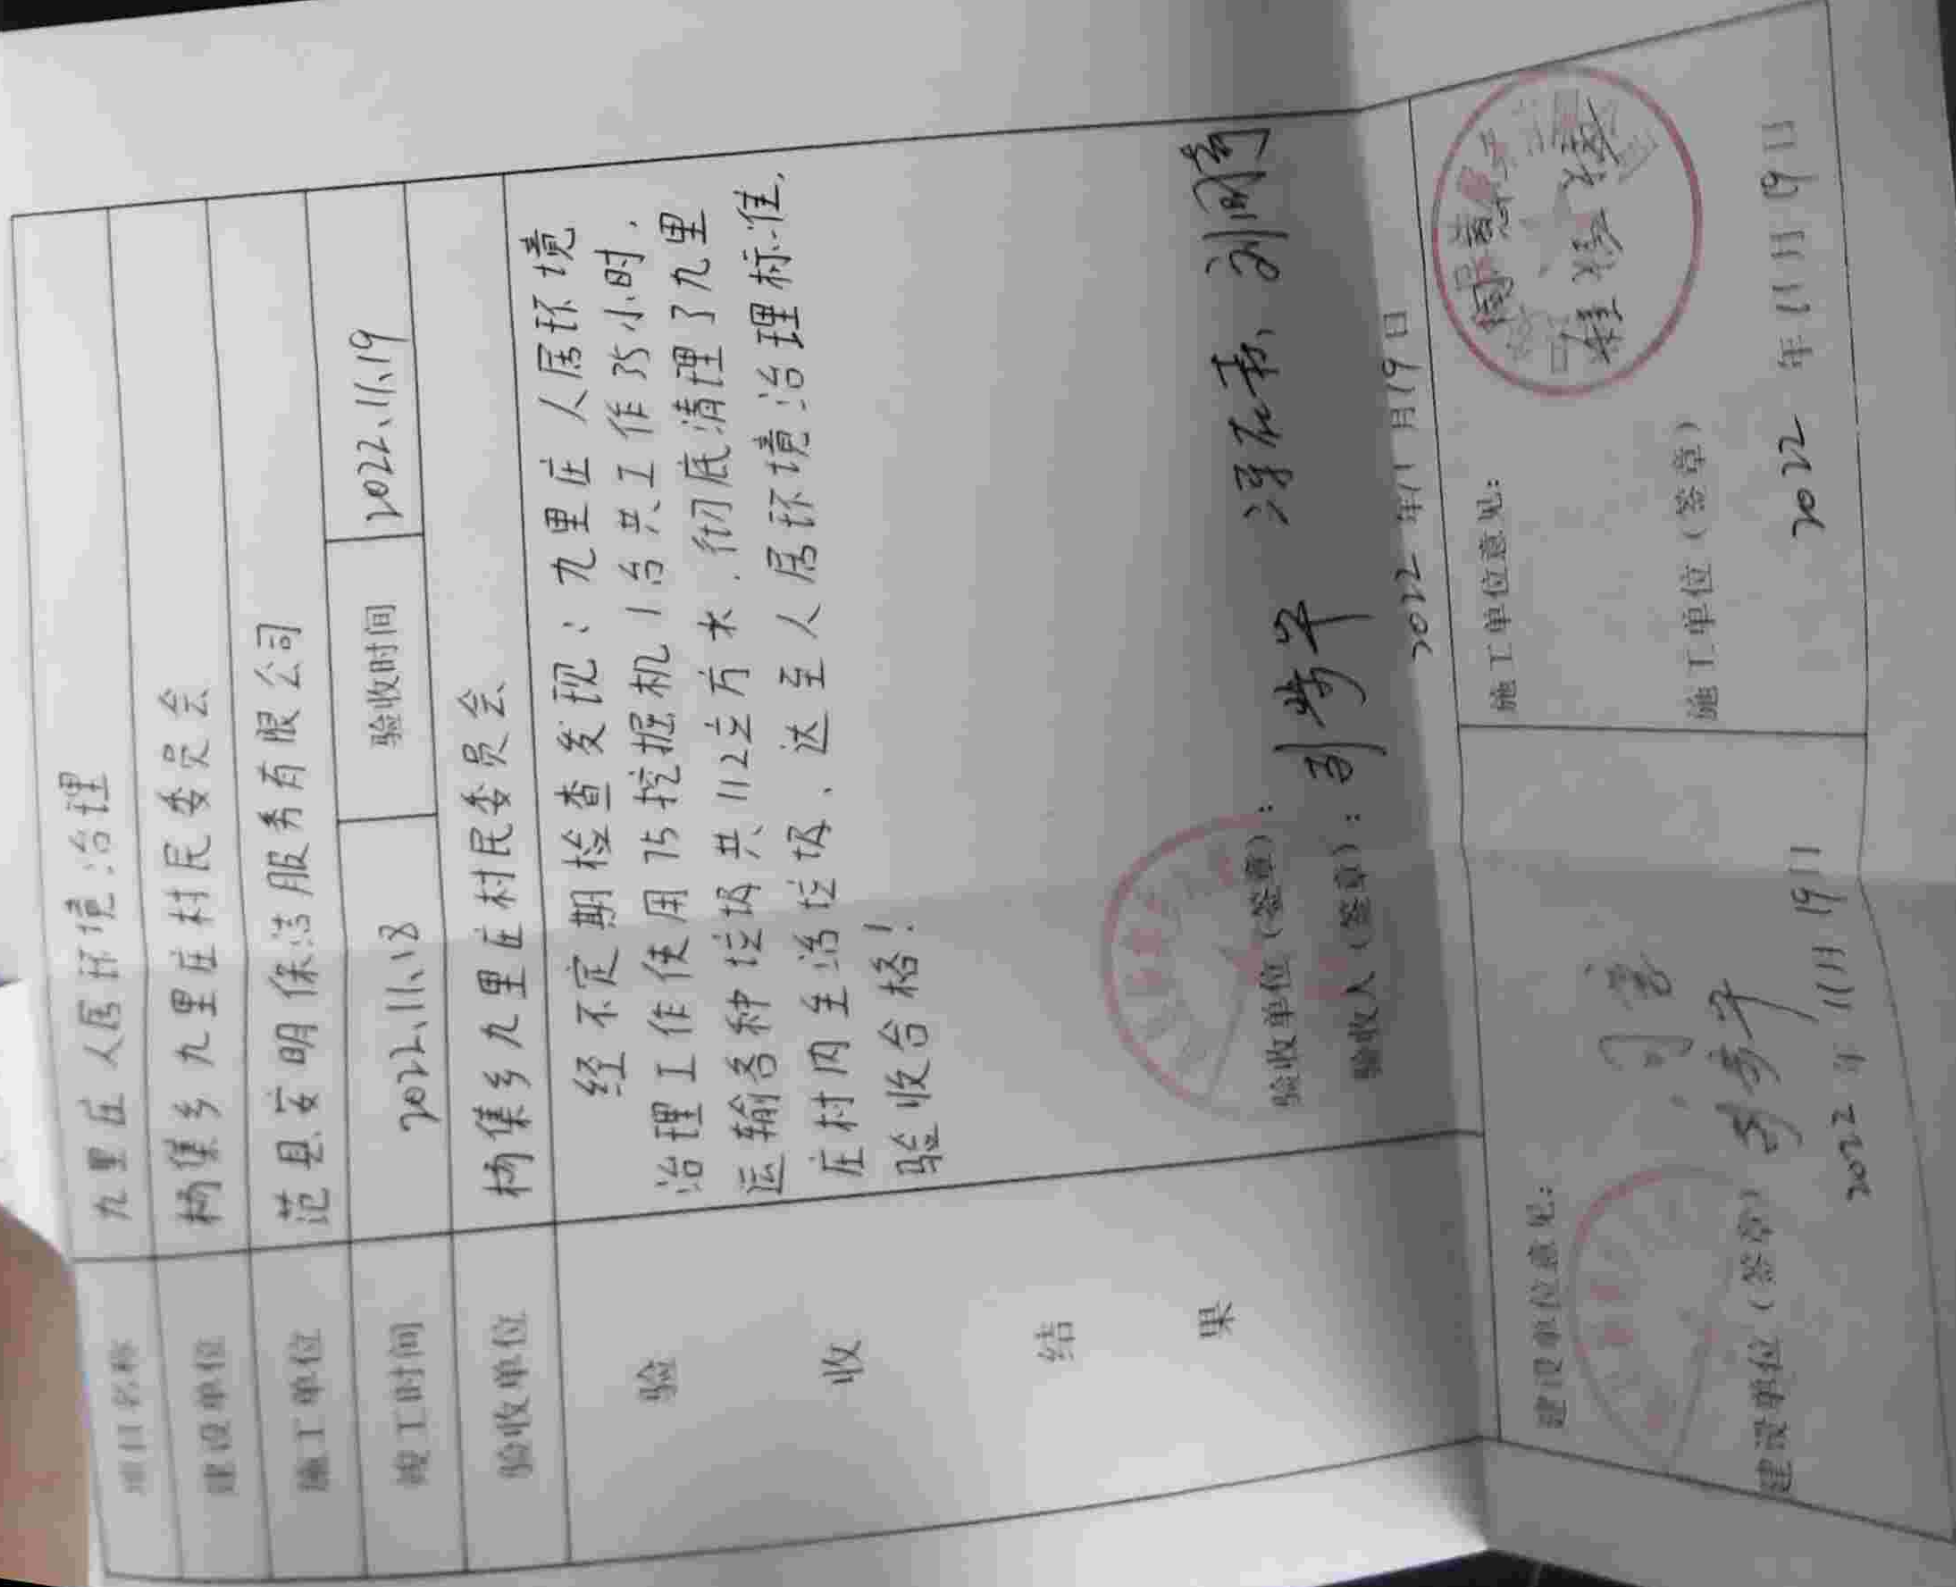 项目名称 九里庄人居环境治理
建设单位 杨集乡九里庄村民委员会
施工单位 范县安明保洁服务有限公司
竣工时间 2022.11.18 验收时间 2022.11.19
验收单位 杨集乡九里庄村民委员会
验收结果
经不定期检查发现:九里庄人居环境
治理工作使用75挖掘机1台共工作35小时.
运输各种垃圾共112立方米.彻底清理了九里
庄村内生活垃圾、达至人居环境治理标准.
验收合格!
验收单位(签章):
验收人(签章):
2022年11月19日
建设单位意见:
同意
建设单位(签章)
2022年11月19日
施工单位意见:
同意
施工单位(签章)
2022年11月19日